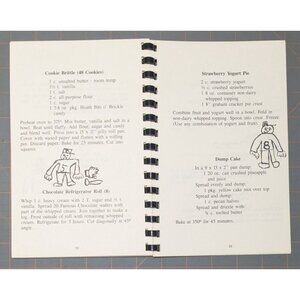 Cookie Brittle (48 Cookies)
1 c. unsalted butter - room temp
1½ t. vanilla
1 t. salt
2 c. all-purpose flour
1 c. sugar
1 7.8 oz. pkg. Heath Bits o' Brickle
candy
Preheat oven to 375°. Mix butter, vanilla and salt in a
bowl. Beat until fluffy. Add flour, sugar and candy
and mix well. Press into a 15 x 10 jelly roll pan.
Cover with waxed paper and flatten with a rolling
pin. Discard paper. Bake for 25 minutes. Cut into
squares.
Chocolate Refrigerator Roll (8)
Whip 1 pt. heavy cream with 2 T. sugar and ½ t.
vanilla. Spread 20 Famous Chocolate wafers with
part of the whipped cream. Join together to make a
log. Frost outside of roll with remaining whipped
cream. Refrigerate for 5 hours. Cut diagonally at 45°
angle.
Strawberry Yogurt Pie
2 c. strawberry yogurt
½ c. crushed strawberries
1 8 oz. container non-dairy
whipped topping
1 8" graham cracker pie crust
Combine fruit and yogurt well in a bowl. Fold in
non-dairy whipped topping. Spoon into crust. Freeze.
(Use any combination of yogurt and fruits.)
Dump Cake
In a 9 x 13 x 2" pan dump:
1 20 oz. can crushed pineapple
and juice
Spread evenly and dump:
1 pkg. yellow cake mix over top
Spread and dump:
1 c. pecan halves
Spread and drizzle with
¾ c. melted butter
Bake at 350° for 45 minutes.